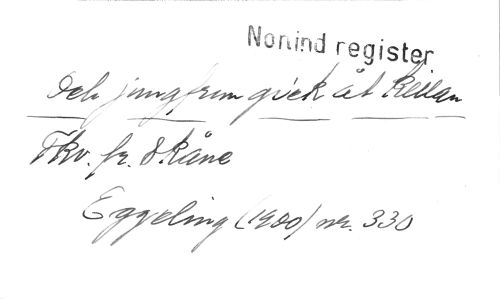 Nomind register
Och jungfrun gick åt källan
Fkv. fr. Skåne
Eggeling (1900) nr. 330